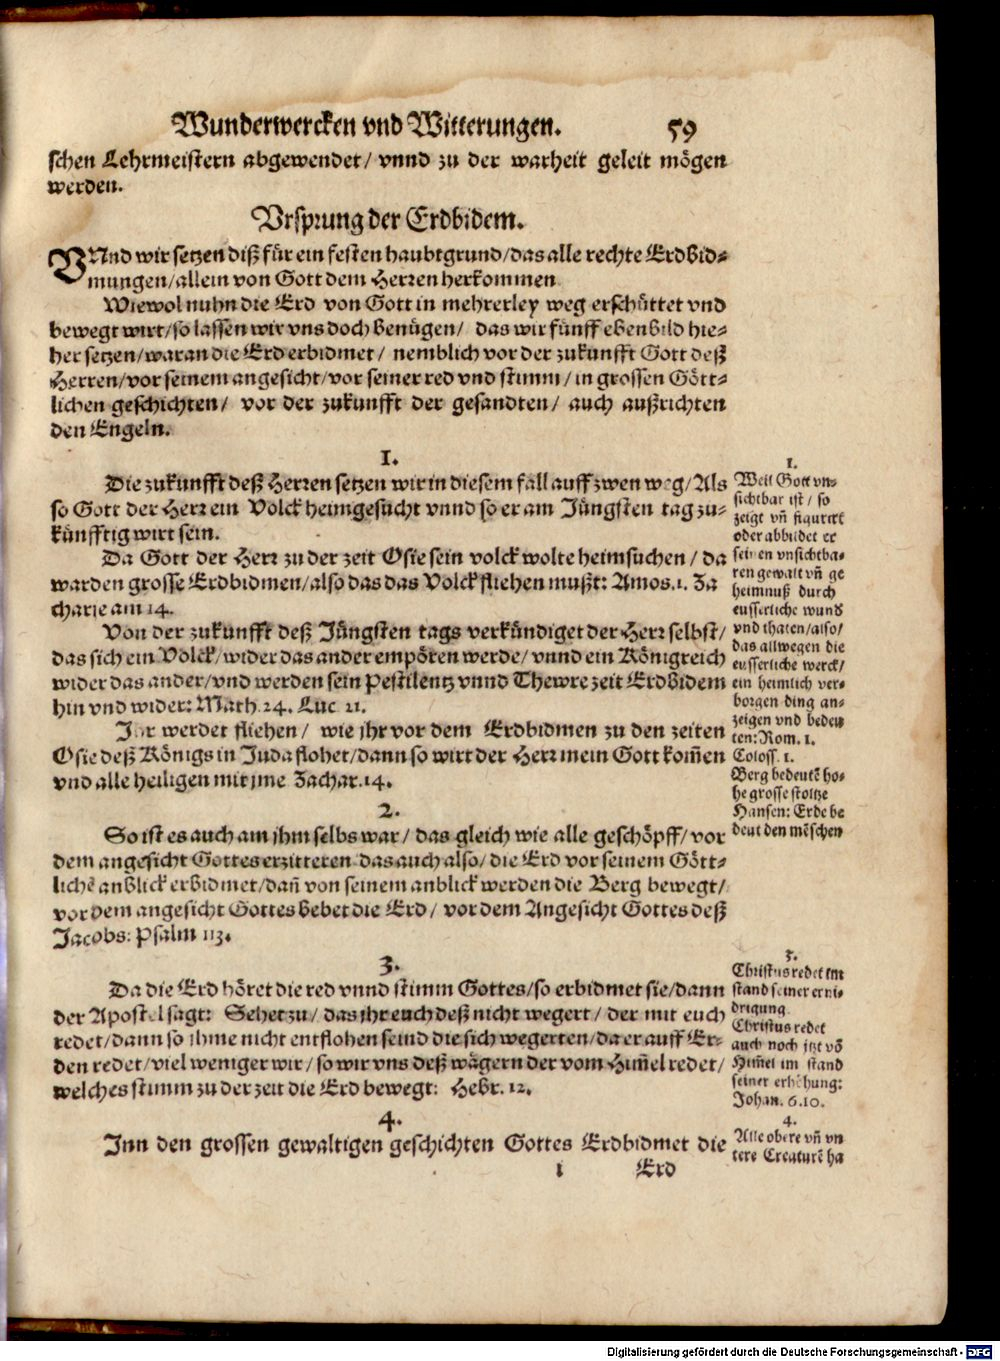 Wunderwercken vnd Witterungen. 59
schen Lehrmeistern abgewendet/ vnnd zu der warheit geleit mögen
werden.
Vrsprung der Erdbidem.
VNnd wir setzen diß für ein festen haubtgrund/das alle rechte Erdbid-
mungen/allein von Gott dem Herren herkommen
Wiewol nuhn die Erd von Gott in mehrerley weg erschüttet vnd
bewegt wirt/so lassen wir vns doch benügen/ das wir fünff ebenbild hie-
her setzen/waran die Erd erbidmet/ nemblich vor der zukunfft Gott deß
Herren/vor seinem angesicht/vor seiner red vnd stimm/in grossen Gött-
lichen geschichten/ vor der zukunfft der gesandten/ auch außrichten
den Engeln.
1.
Die zukunfft deß Herren setzen wir in diesem fall auff zwen weg/Als
so Gott der Herr ein Volck heimgesucht vnnd so er am Jüngsten tag zu-
künfftig wirt sein.
Da Gott der Herr zu der zeit Osie sein volck wolte heimsuchen/ da
warden grosse Erdbidmen/also das das Volck fliehen mußt: Amos.1. Za
charie am 14.
Von der zukunfft deß Jüngsten tags verkündiget der Herr selbst/
das sich ein Volck/wider das ander empören werde/vnnd ein Königreich
wider das ander/vnd werden sein Pestilentz vnnd Thewre zeit Erdbidem
hin vnd wider: Math. 24. Luc. 21.
Ihr werdet fliehen/ wie jhr vor dem Erdbidmen zu den zeiten
Osie deß Königs in Juda flohet/dann so wirt der Herr mein Gott kom̃en
vnd alle heiligen mit jme Zachar.14.
2.
So ist es auch am jhm selbs war/ das gleich wie alle geschöpff/vor
dem angesicht Gottes erzitteren das auch also/die Erd vor seinem Gött-
lichẽ anblick erbidmet/dañ von seinem anblick werden die Berg bewegt/
vor dem angesicht Gottes bebet die Erd/ vor dem Angesicht Gottes deß
Jacobs: Psalm 113.
3.
Da die Erd höret die red vnnd stimm Gottes/so erbidmet sie/dann
der Apostel sagt: Sehet zu/ das jhr euch deß nicht wegert/ der mit euch
redet/dann so jhme nicht entflohen seind die sich wegerten/da er auff Er-
den redet/viel weniger wir/so wir vns deß wägern der vom Him̃el redet/
welches stimm zu der zeit die Erd bewegt: Hebr. 12.
4.
Inn den grossen gewaltigen geschichten Gottes Erdbidmet die
i Erd
1.
Weil Gott vn-
sichtbar ist/ so
zeigt vñ figurirt
oder abbildet er
seinen vnsichtba-
ren gewalt vñ ge
heimnuß durch
eusserliche wund
vnd thaten/also/
das allwegen die
eusserliche werck/
ein heimlich ver-
borgen ding an-
zeigen vnd bedeu
ten: Rom. 1.
Coloss. 1.
Berg bedeutẽ ho-
he grosse stoltze
Hansen: Erde be
deut den mẽschen
3.
Christus redet im
stand seiner erni-
drigung
Christus redet
auch noch jtzt võ
Him̃el im stand
seiner erhöhung:
Johan. 6.10.
4.
Alle obere vñ vn
tere Creaturẽ ha
Digitalisierung gefördert durch die Deutsche Forschungsgemeinschaft - DFG